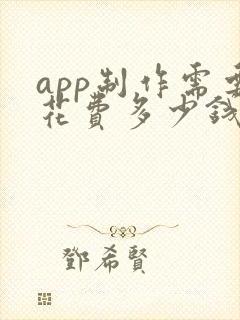 app制作需要
花费多少钱
鄧希賢